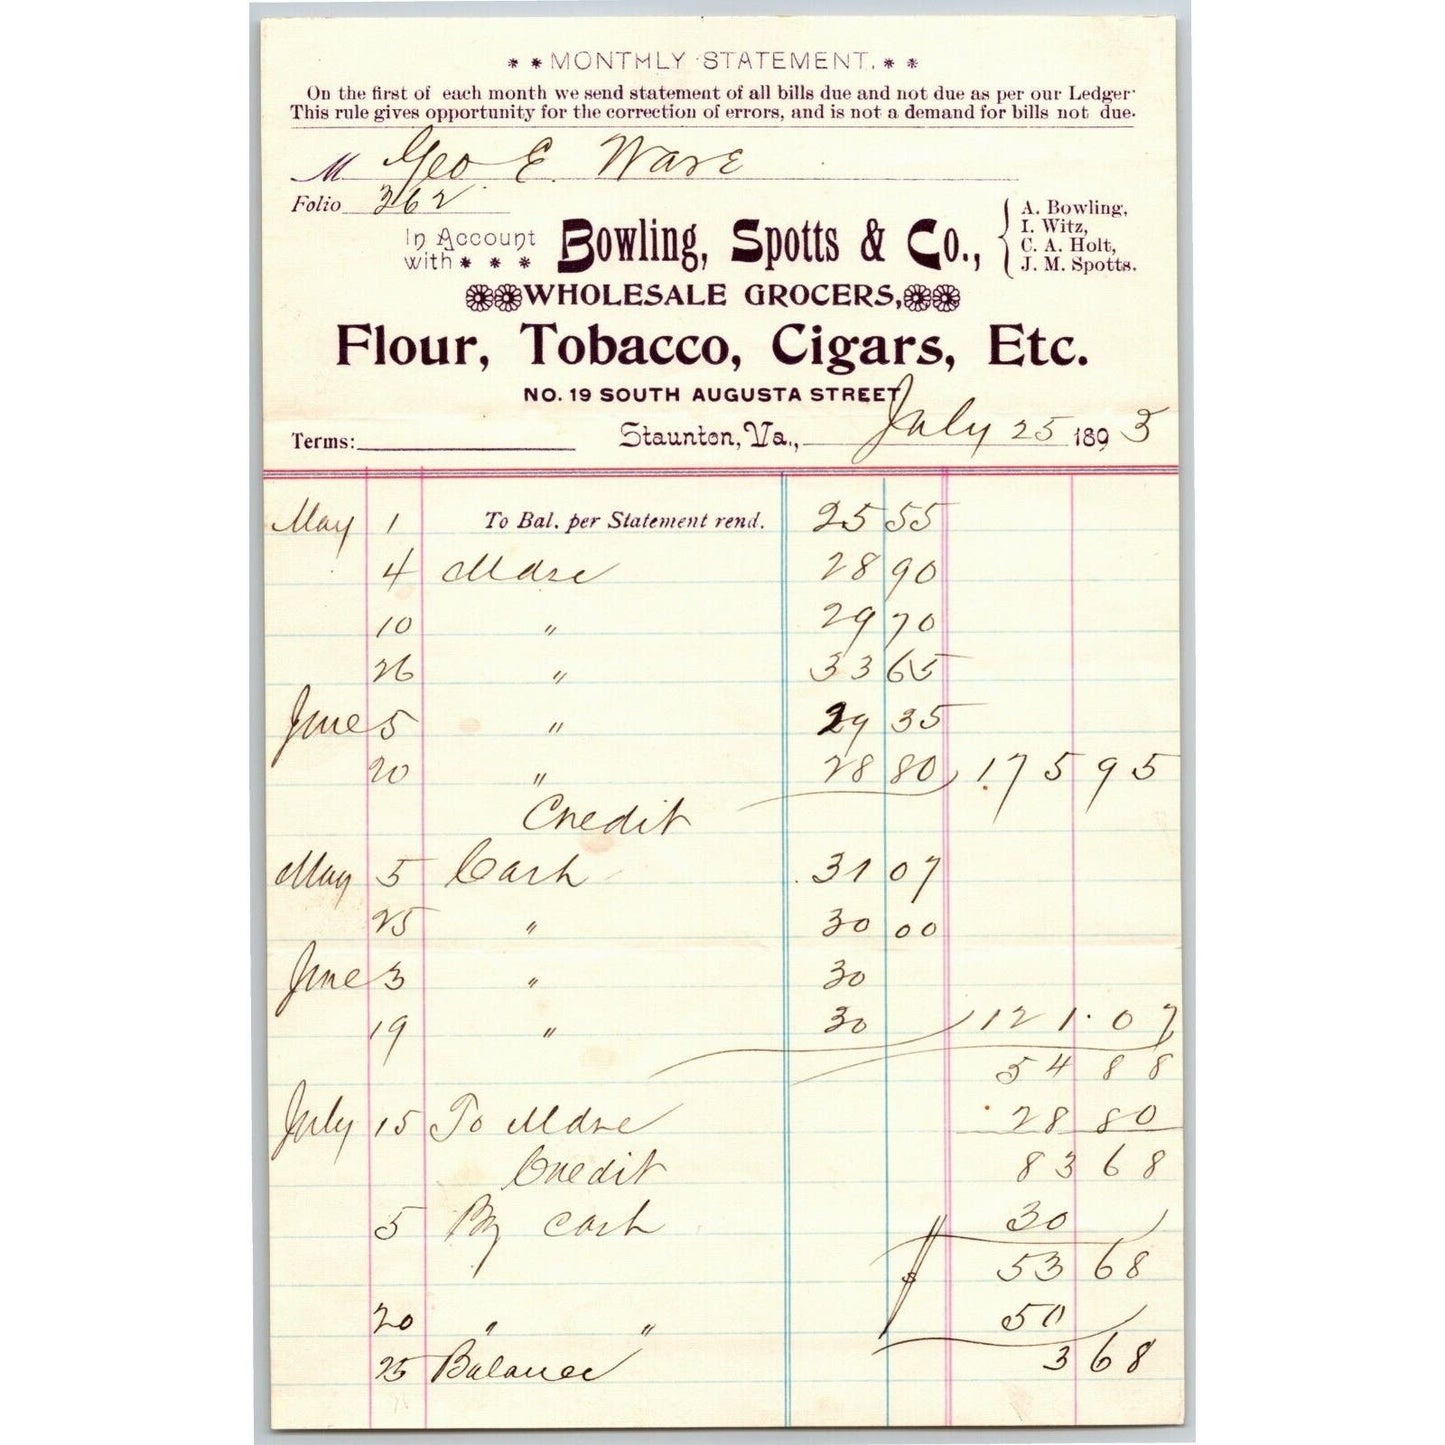 * * MONTHLY STATEMENT. * *
On the first of each month we send statement of all bills due and not due as per our Ledger.
This rule gives opportunity for the correction of errors, and is not a demand for bills not due.
M Geo E. Ware
Folio 362
In Account with * * * Bowling, Spotts & Co., { A. Bowling,
I. Witz,
C. A. Holt,
J. M. Spotts.
WHOLESALE GROCERS,
Flour, Tobacco, Cigars, Etc.
NO. 19 SOUTH AUGUSTA STREET
Terms: Staunton, Va., July 25 1893
May 1 To Bal. per Statement rend. 25 55
4 Mdse 28 90
10 " 29 70
26 " 33 65
June 5 " 29 35
20 " 28 80 175 95
Credit
May 5 Cash 31 07
25 " 30 00
June 3 " 30
19 " 30 121.07
54 88
July 15 To Mdse 28 80
Credit 83 68
5 By cash 30
53 68
20 " " 50
25 Balance 3 68